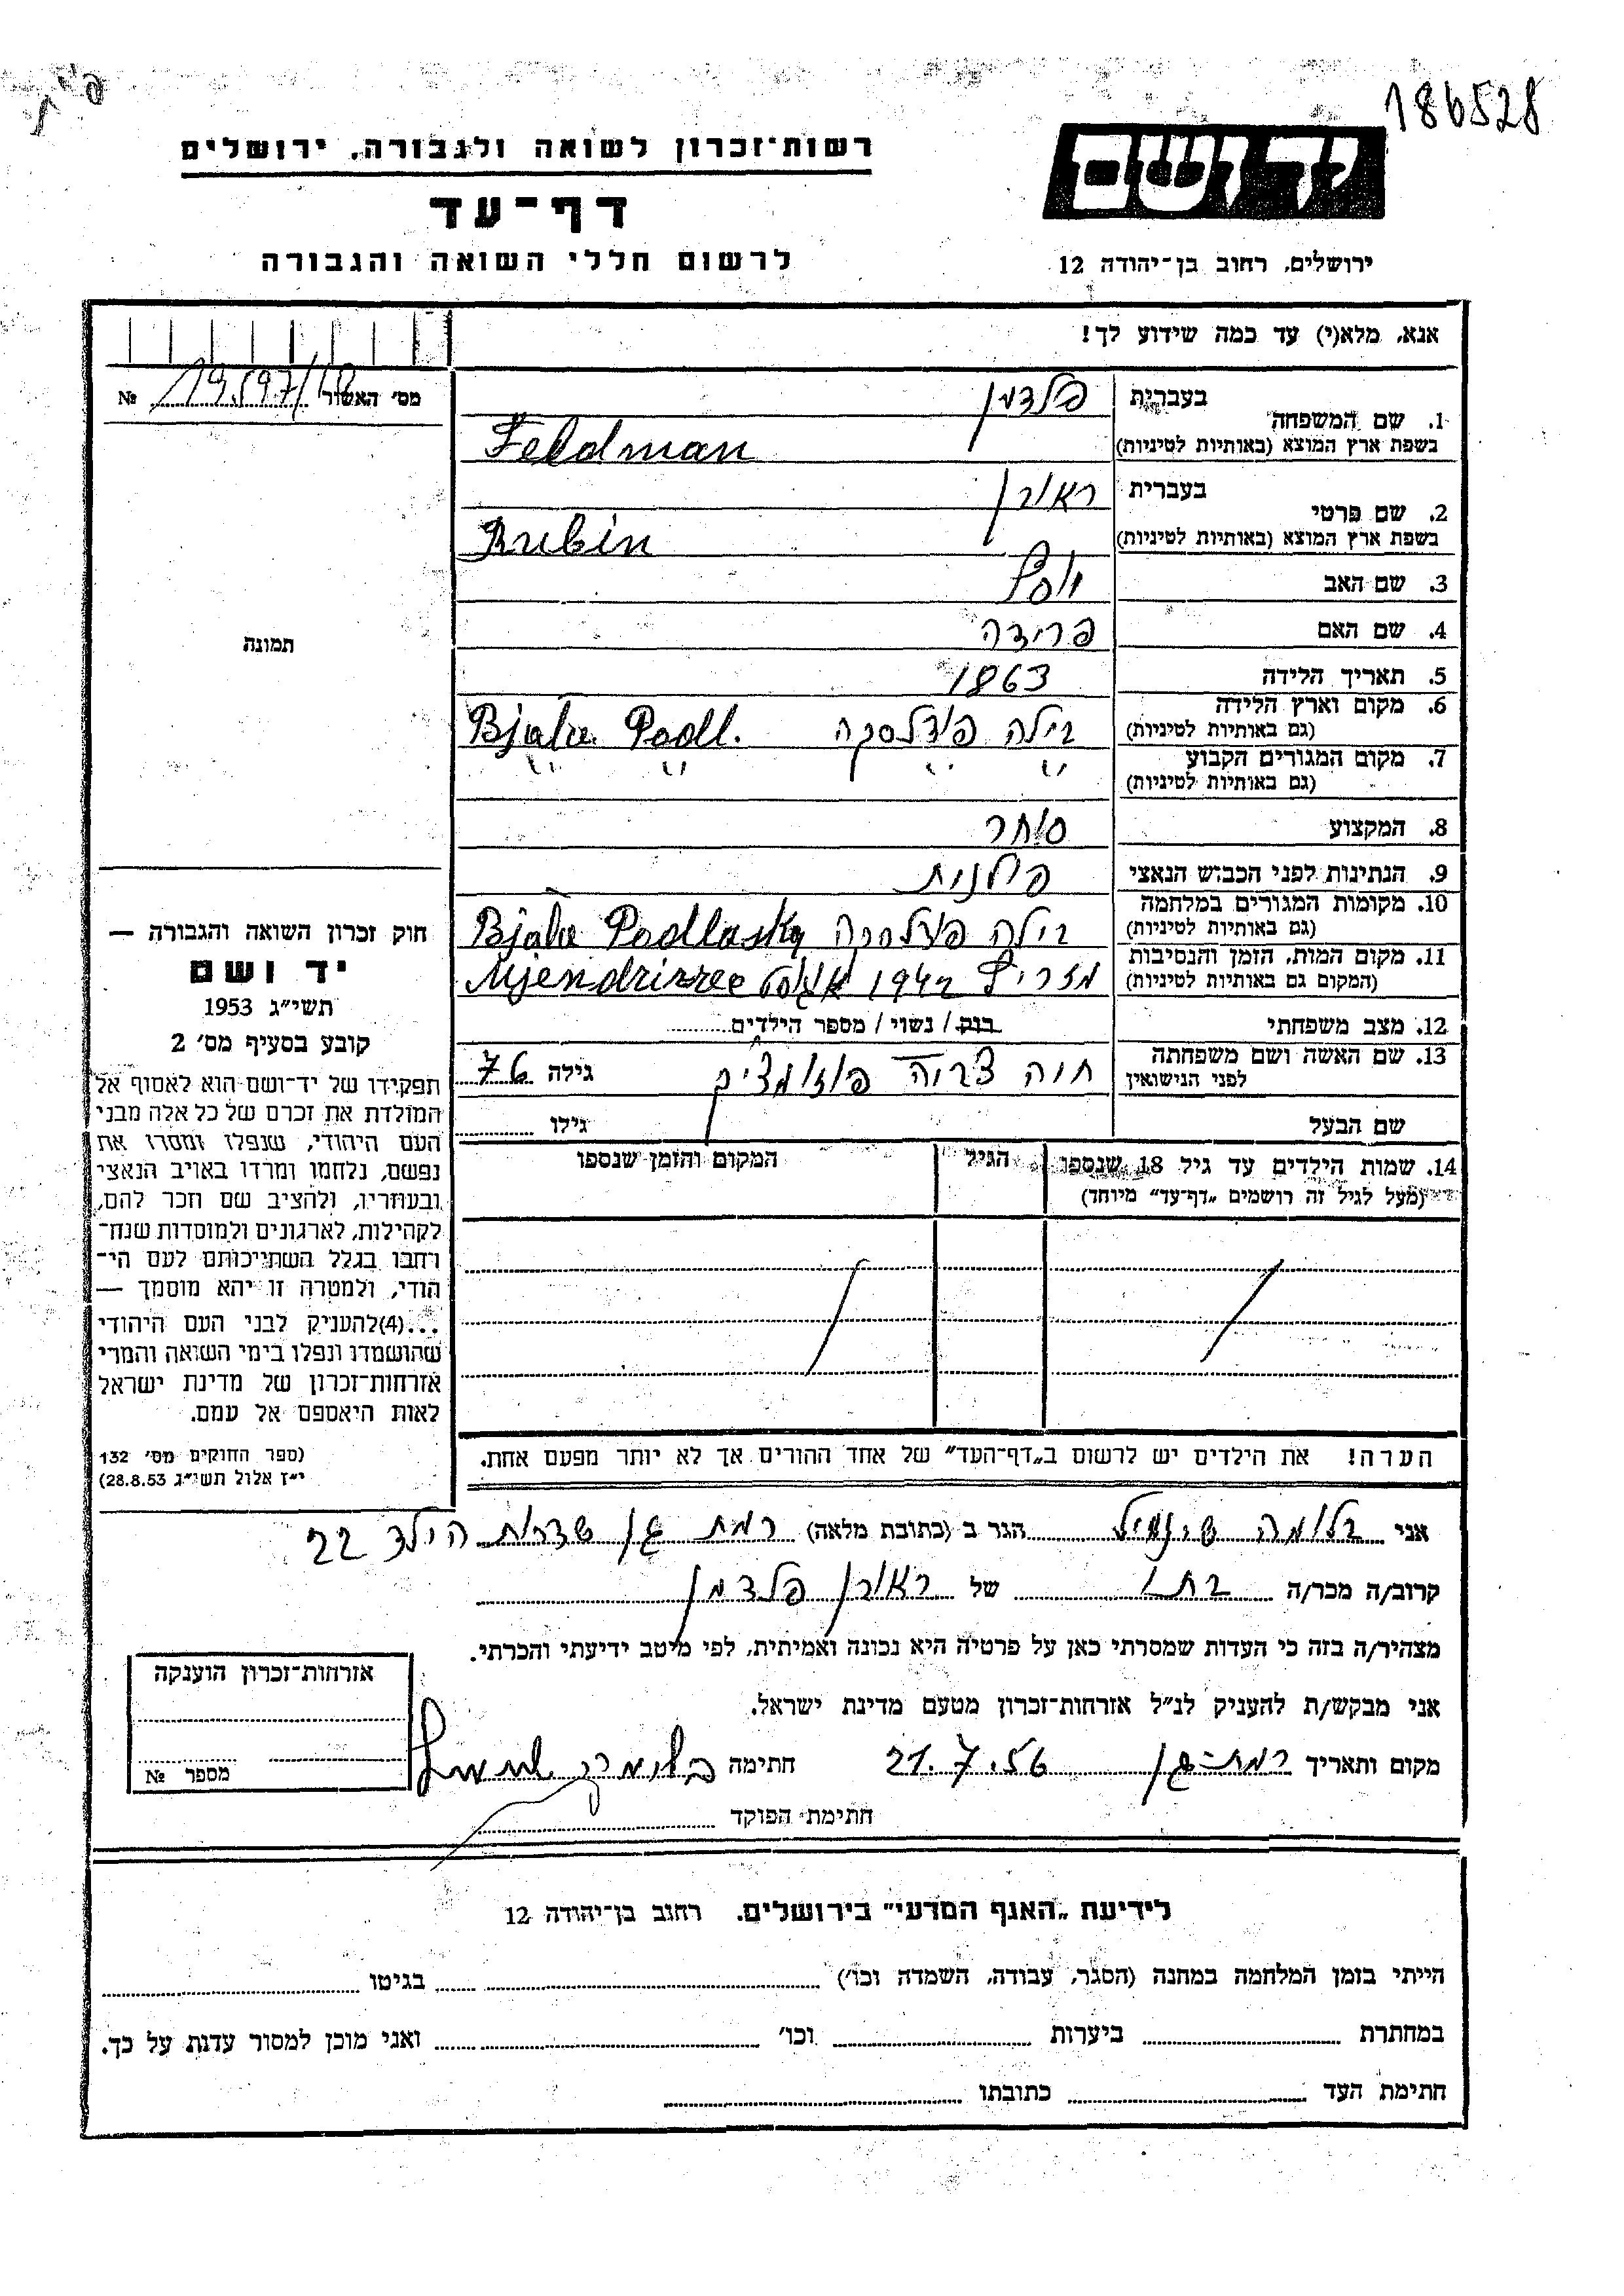 186528
יד ושם
ירושלים, רחוב בן־יהודה 12
רשות־זכרון לשואה ולגבורה, ירושלים
דף־עד
לרשום חללי השואה והגבורה
אנא, מלא(י) עד כמה שידוע לך!
מס׳ האשור №
1. שם המשפחה בעברית פלדמן
בשפת ארץ המוצא (באותיות לטיניות) Feldman
2. שם פרטי בעברית ראובן
בשפת ארץ המוצא (באותיות לטיניות) Rubin
3. שם האב יוסף
4. שם האם פרידה
5. תאריך הלידה 1863
6. מקום וארץ הלידה (גם באותיות לטיניות) בילה פודלסקה Bjala Podl.
7. מקום המגורים הקבוע (גם באותיות לטיניות) " " " "
8. המקצוע סוחר
9. הנתינות לפני הכבוש הנאצי פולנית
10. מקומות המגורים במלחמה (גם באותיות לטיניות) בילה פודלסקה Bjala Podlaska
11. מקום המות, הזמן והנסיבות (המקום גם באותיות לטיניות) מזריץ 1942 אוגוסט
12. מצב משפחתי רווק / נשוי / מספר הילדים
13. שם האשה ושם משפחתה לפני הנישואין חוה גילה 76
שם הבעל גילו
14. שמות הילדים עד גיל 18 שנספו הגיל המקום והזמן שנספו
(מעל לגיל זה רושמים „דף־עד״ מיוחד)
הערה! את הילדים יש לרשום ב„דף־העד״ של אחד ההורים אך לא יותר מפעם אחת.
תמונה
חוק זכרון השואה והגבורה —
יד ושם
תשי״ג 1953
קובע בסעיף מס׳ 2
תפקידו של יד־ושם הוא לאסוף אל
המולדת את זכרם של כל אלה מבני
העם היהודי, שנפלו ומסרו את
נפשם, נלחמו ומרדו באויב הנאצי
ובעוזריו, ולהציב שם וזכר להם,
לקהילות, לארגונים ולמוסדות שנח־
רבו בגלל השתייכותם לעם הי־
הודי, ולמטרה זו יהא מוסמך —
...(4)להעניק לבני העם היהודי
שהושמדו ונפלו בימי השואה והמרי
אזרחות־זכרון של מדינת ישראל
לאות היאספם אל עמם.
(ספר החוקים מס׳ 132
י״ז אלול תשי״ג 28.8.53)
אני בלומה הגר ב (כתובת מלאה) רמת גן שדרות הילד 22
קרוב/ה מכר/ה בתו של ראובן פלדמן
מצהיר/ה בזה כי העדות שמסרתי כאן על פרטיה היא נכונה ואמיתית, לפי מיטב ידיעתי והכרתי.
אני מבקש/ת להעניק לנ״ל אזרחות־זכרון מטעם מדינת ישראל.
מקום ותאריך רמת־גן 21.7.56 חתימה
חתימת הפוקד
אזרחות־זכרון הוענקה
מספר №
לידיעת „האגף המדעי״ בירושלים, רחוב בן־יהודה 12
הייתי בזמן המלחמה במחנה (הסגר, עבודה, השמדה וכו׳) בגיטו
במחתרת ביערות וכו׳ ואני מוכן למסור עדות על כך.
חתימת העד כתובתו